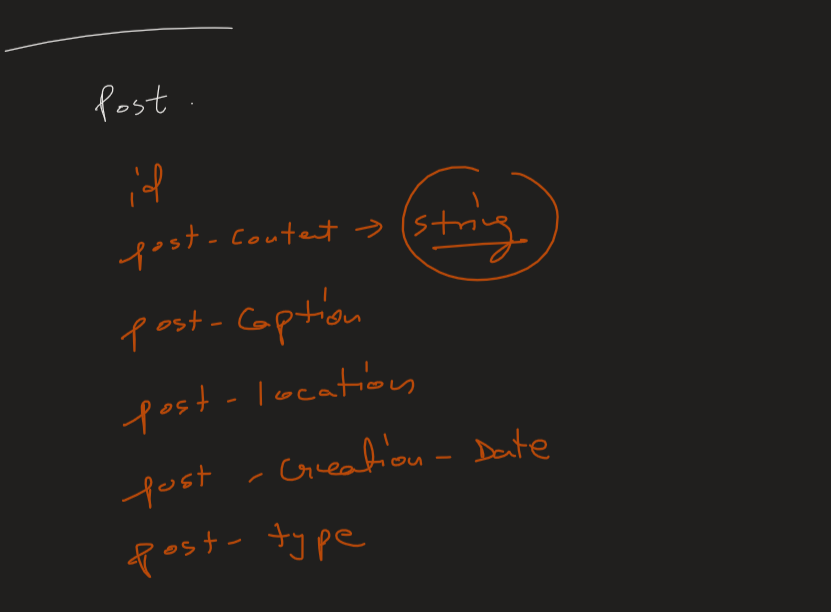 Post.
id
post-content → string
post-Caption
post-location
post-Creation-Date
post-type